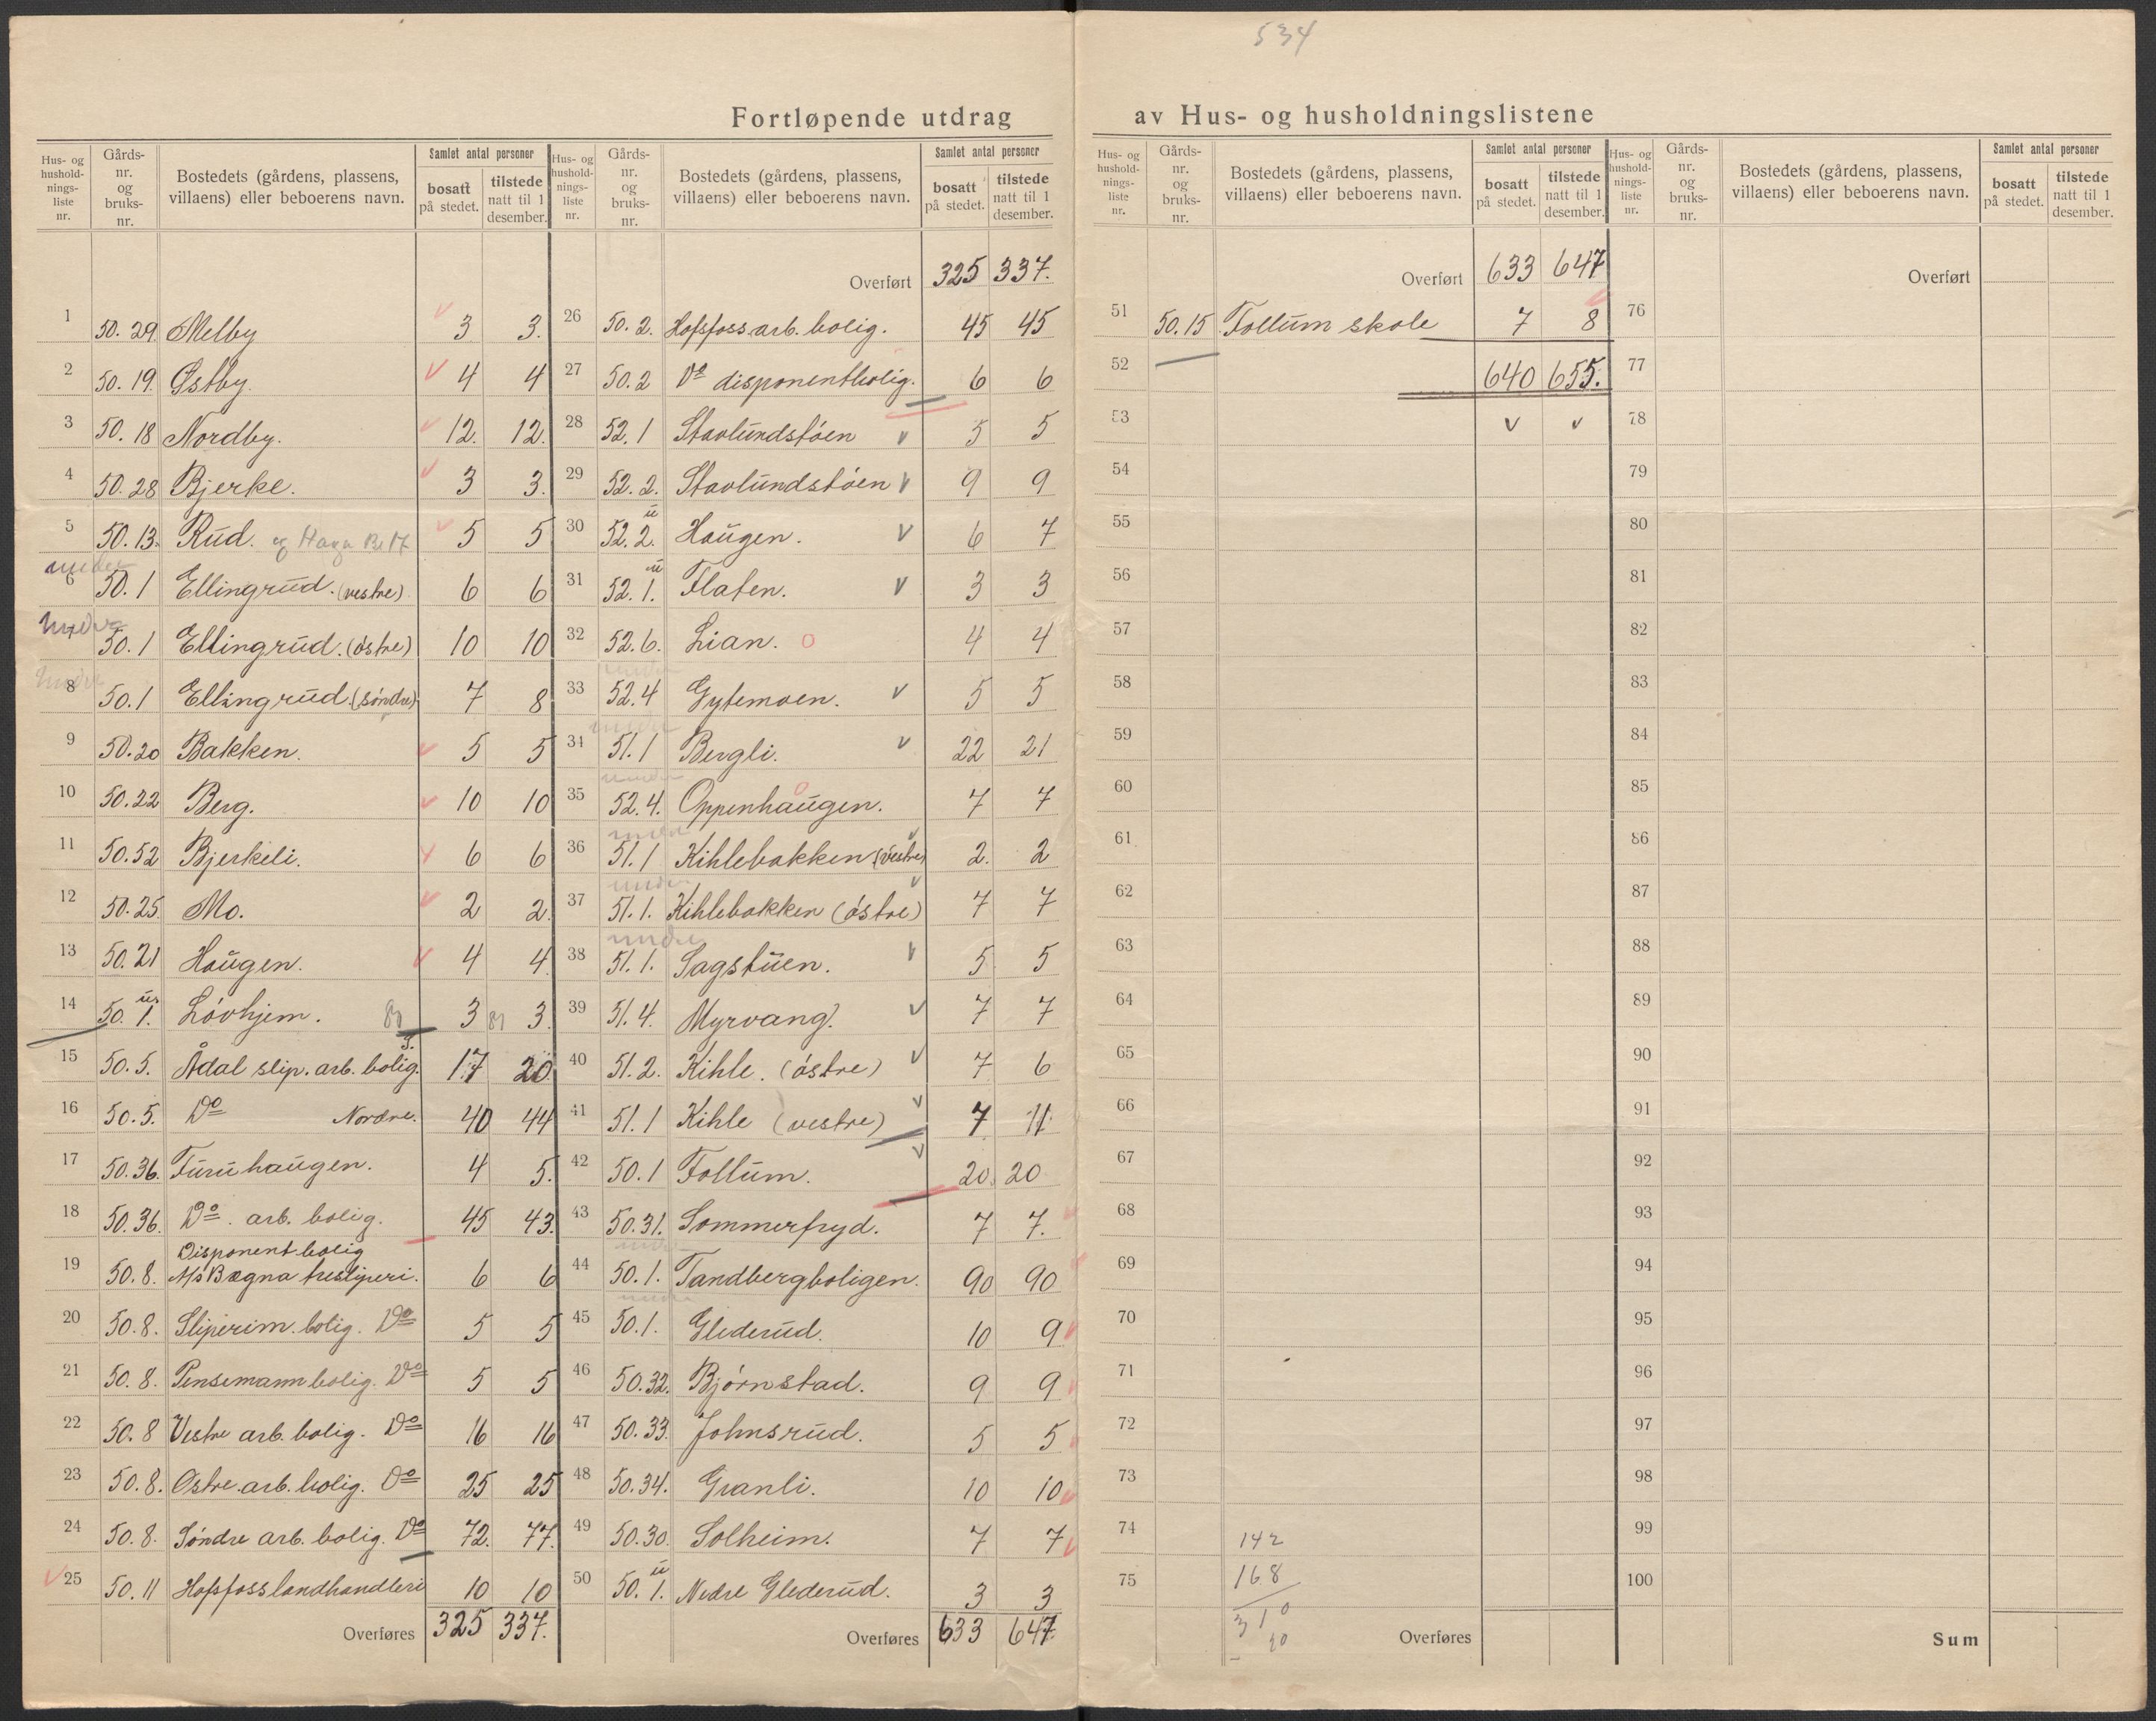 534
Fortløpende utdrag av Hus- og husholdningslistene
Hus- og husholdnings-liste nr. | Gårds-nr. og bruks-nr. | Bostedets (gårdens, plassens, villaens) eller beboerens navn. | Samlet antal personer | bosatt på stedet. | tilstede natt til 1 desember.
1 50.29 Melby 3 3.
2 50.19. Østby. 4 4
3 50.18 Nordby. 12. 12.
4 50.28 Bjerke. 3 3.
5 50.13. Rud. 5 5
6 under 50.1 Ellingrud. (vestre) 6 6
7 under 50.1 Ellingrud. (østre) 10 10
8 under 50.1 Ellingrud. (søndre) 7 8
9 50.20 Bakken. 5 5
10 50.22 Berg. 10 10
11 50.52 Bjerkeli. 6 6
12 50.25 Mo. 2 2.
13 50.21 Haugen. 4 4
14 50.1. u. Løvhjem. 3 3.
15 50.5. Ådal slip. arb. bolig. S. 17 20
16 50.5. Do Nordre. 40 44
17 50.36. Furuhaugen. 4 5.
18 50.36. Do. arb. bolig. 45 43.
19 50.8. Disponent bolig A/s Bægna tresliperi. 6 6
20 50.8. Sliperim. bolig. Do 5 5
21 50.8. Pensemann bolig. Do 5 5
22 50.8 Vestre arb. bolig. Do 16 16
23 50.8. Østre arb. bolig. Do 25 25
24 50.8. Søndre arb. bolig. Do 72. 77.
25 50.11 Hofsfoss landhandleri 10 10
Overføres 325 337.
Hus- og husholdnings-liste nr. | Gårds-nr. og bruks-nr. | Bostedets (gårdens, plassens, villaens) eller beboerens navn. | Samlet antal personer | bosatt på stedet. | tilstede natt til 1 desember.
Overført 325 337.
26 50.2. Hofsfoss arb. bolig. 45 45
27 50.2 Do disponentbolig. 6 6
28 52.1 Stavlundstøen 5 5
29 52.2. Stavlundstøen 9 9
30 52.2. u Haugen. 6 7
31 52.1. u Flaten. 3 3
32 52.6. Lian. 4 4
33 under 52.4 Gytemoen. 5 5
34 under 51.1 Bergli. 22 21
35 under 52.4. Oppenhaugen. 7 7
36 under 51.1 Kihlebakken (vestre) 2. 2
37 under 51.1. Kihlebakken (østre) 7 7
38 under 51.1. Sagstuen. 5 5
39 51.4. Myrvang. 7 7
40 51.2. Kihle. (østre) 7 6
41 51.1 Kihle (vestre) 7 11.
42 50.1 Follum. 20. 20
43 50.31. Sommerfryd. 7 7.
44 under 50.1. Tandbergboligen. 90 90
45 under 50.1. Glederud. 10 9
46 50.32. Bjørnstad. 9 9
47 50.33. Johnsrud. 5 5
48 50.34. Granli. 10 10
49 50.30. Solheim. 7 7
50 50.1. u Nedre Glederud. 3 3
Overføres 633 647.
Hus- og husholdnings-liste nr. | Gårds-nr. og bruks-nr. | Bostedets (gårdens, plassens, villaens) eller beboerens navn. | Samlet antal personer | bosatt på stedet. | tilstede natt til 1 desember.
Overført 633 647
51 50.15 Follum skole 7 8
52 640 655.
53
54
55
56
57
58
59
60
61
62
63
64
65
66
67
68
69
70
71
72
73
74 142
75 168
310
Overføres
Hus- og husholdnings-liste nr. | Gårds-nr. og bruks-nr. | Bostedets (gårdens, plassens, villaens) eller beboerens navn. | Samlet antal personer | bosatt på stedet. | tilstede natt til 1 desember.
Overført
76
77
78
79
80
81
82
83
84
85
86
87
88
89
90
91
92
93
94
95
96
97
98
99
100
Sum